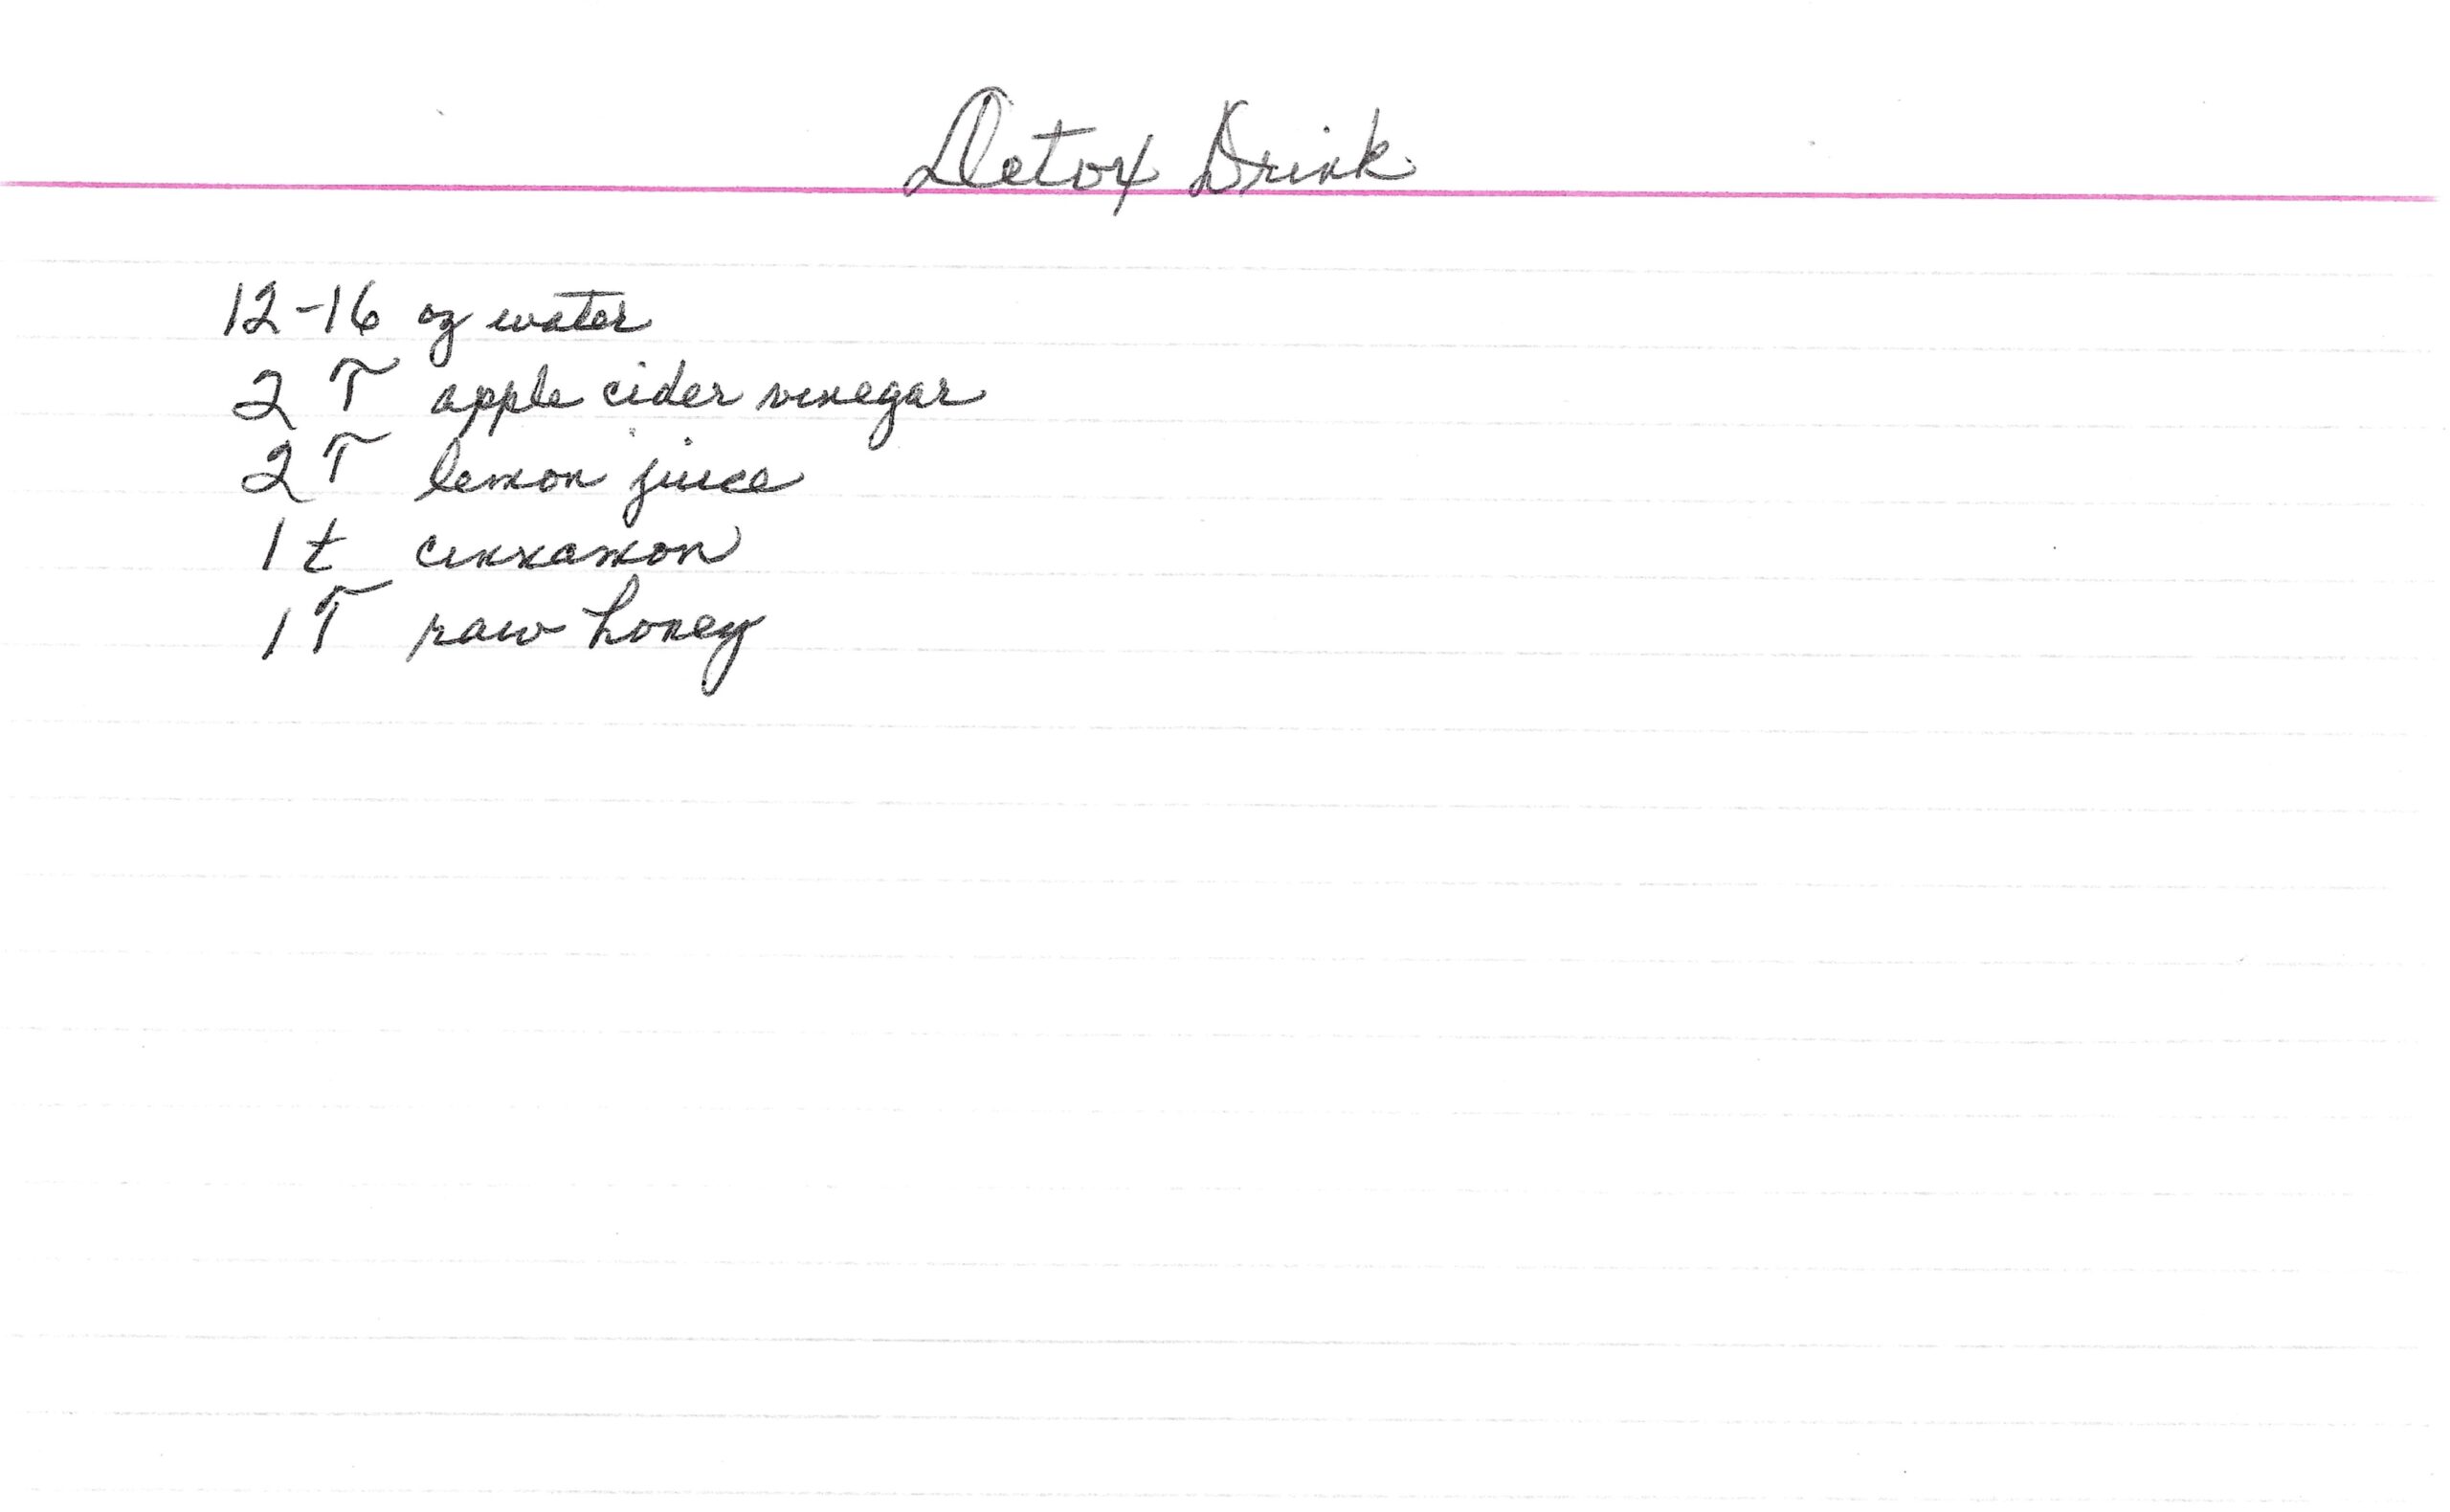 Detox Drink
12-16 oz water
2 T apple cider vinegar
2 T lemon juice
1 t cinnamon
1 T raw honey